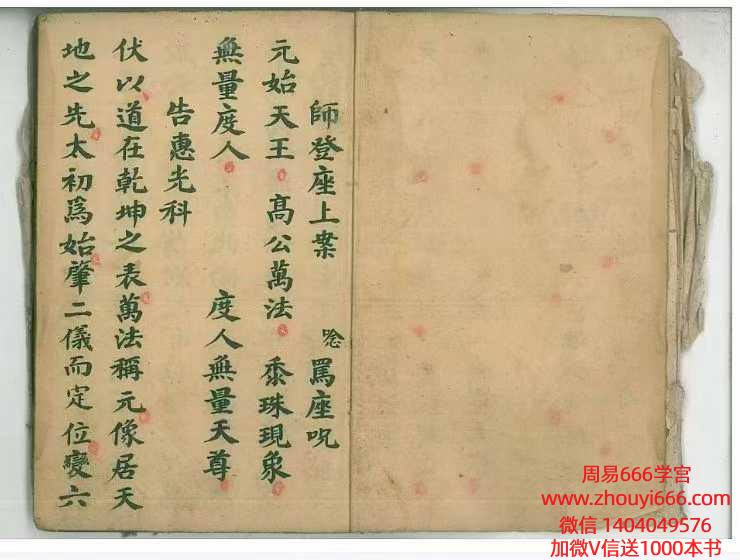 師登座上案 唸 罵座呪
元始天王 高公萬法 黍珠現象
無量度人 度人無量天尊
告惠光科
伏以道在乾坤之表萬法稱元像居天
地之先太初爲始肇二儀而定位變六
周易666学宫
www.zhouyi666.com
微信 1404049576
加微V信送1000本书